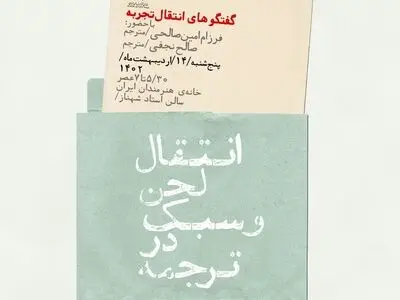 گفتگوهای انتقال تجربه
با حضور:
فرزام امین‌صالحی/مترجم
صالح نجفی/مترجم
پنج‌شنبه/۱۴/اردیبهشت‌ماه/
۱۴۰۲
۵/۳۰ تا ۷ عصر
خانه‌ی هنرمندان ایران
سالن استاد شهناز/
انتقال
لحن
و سبک
در
ترجمه